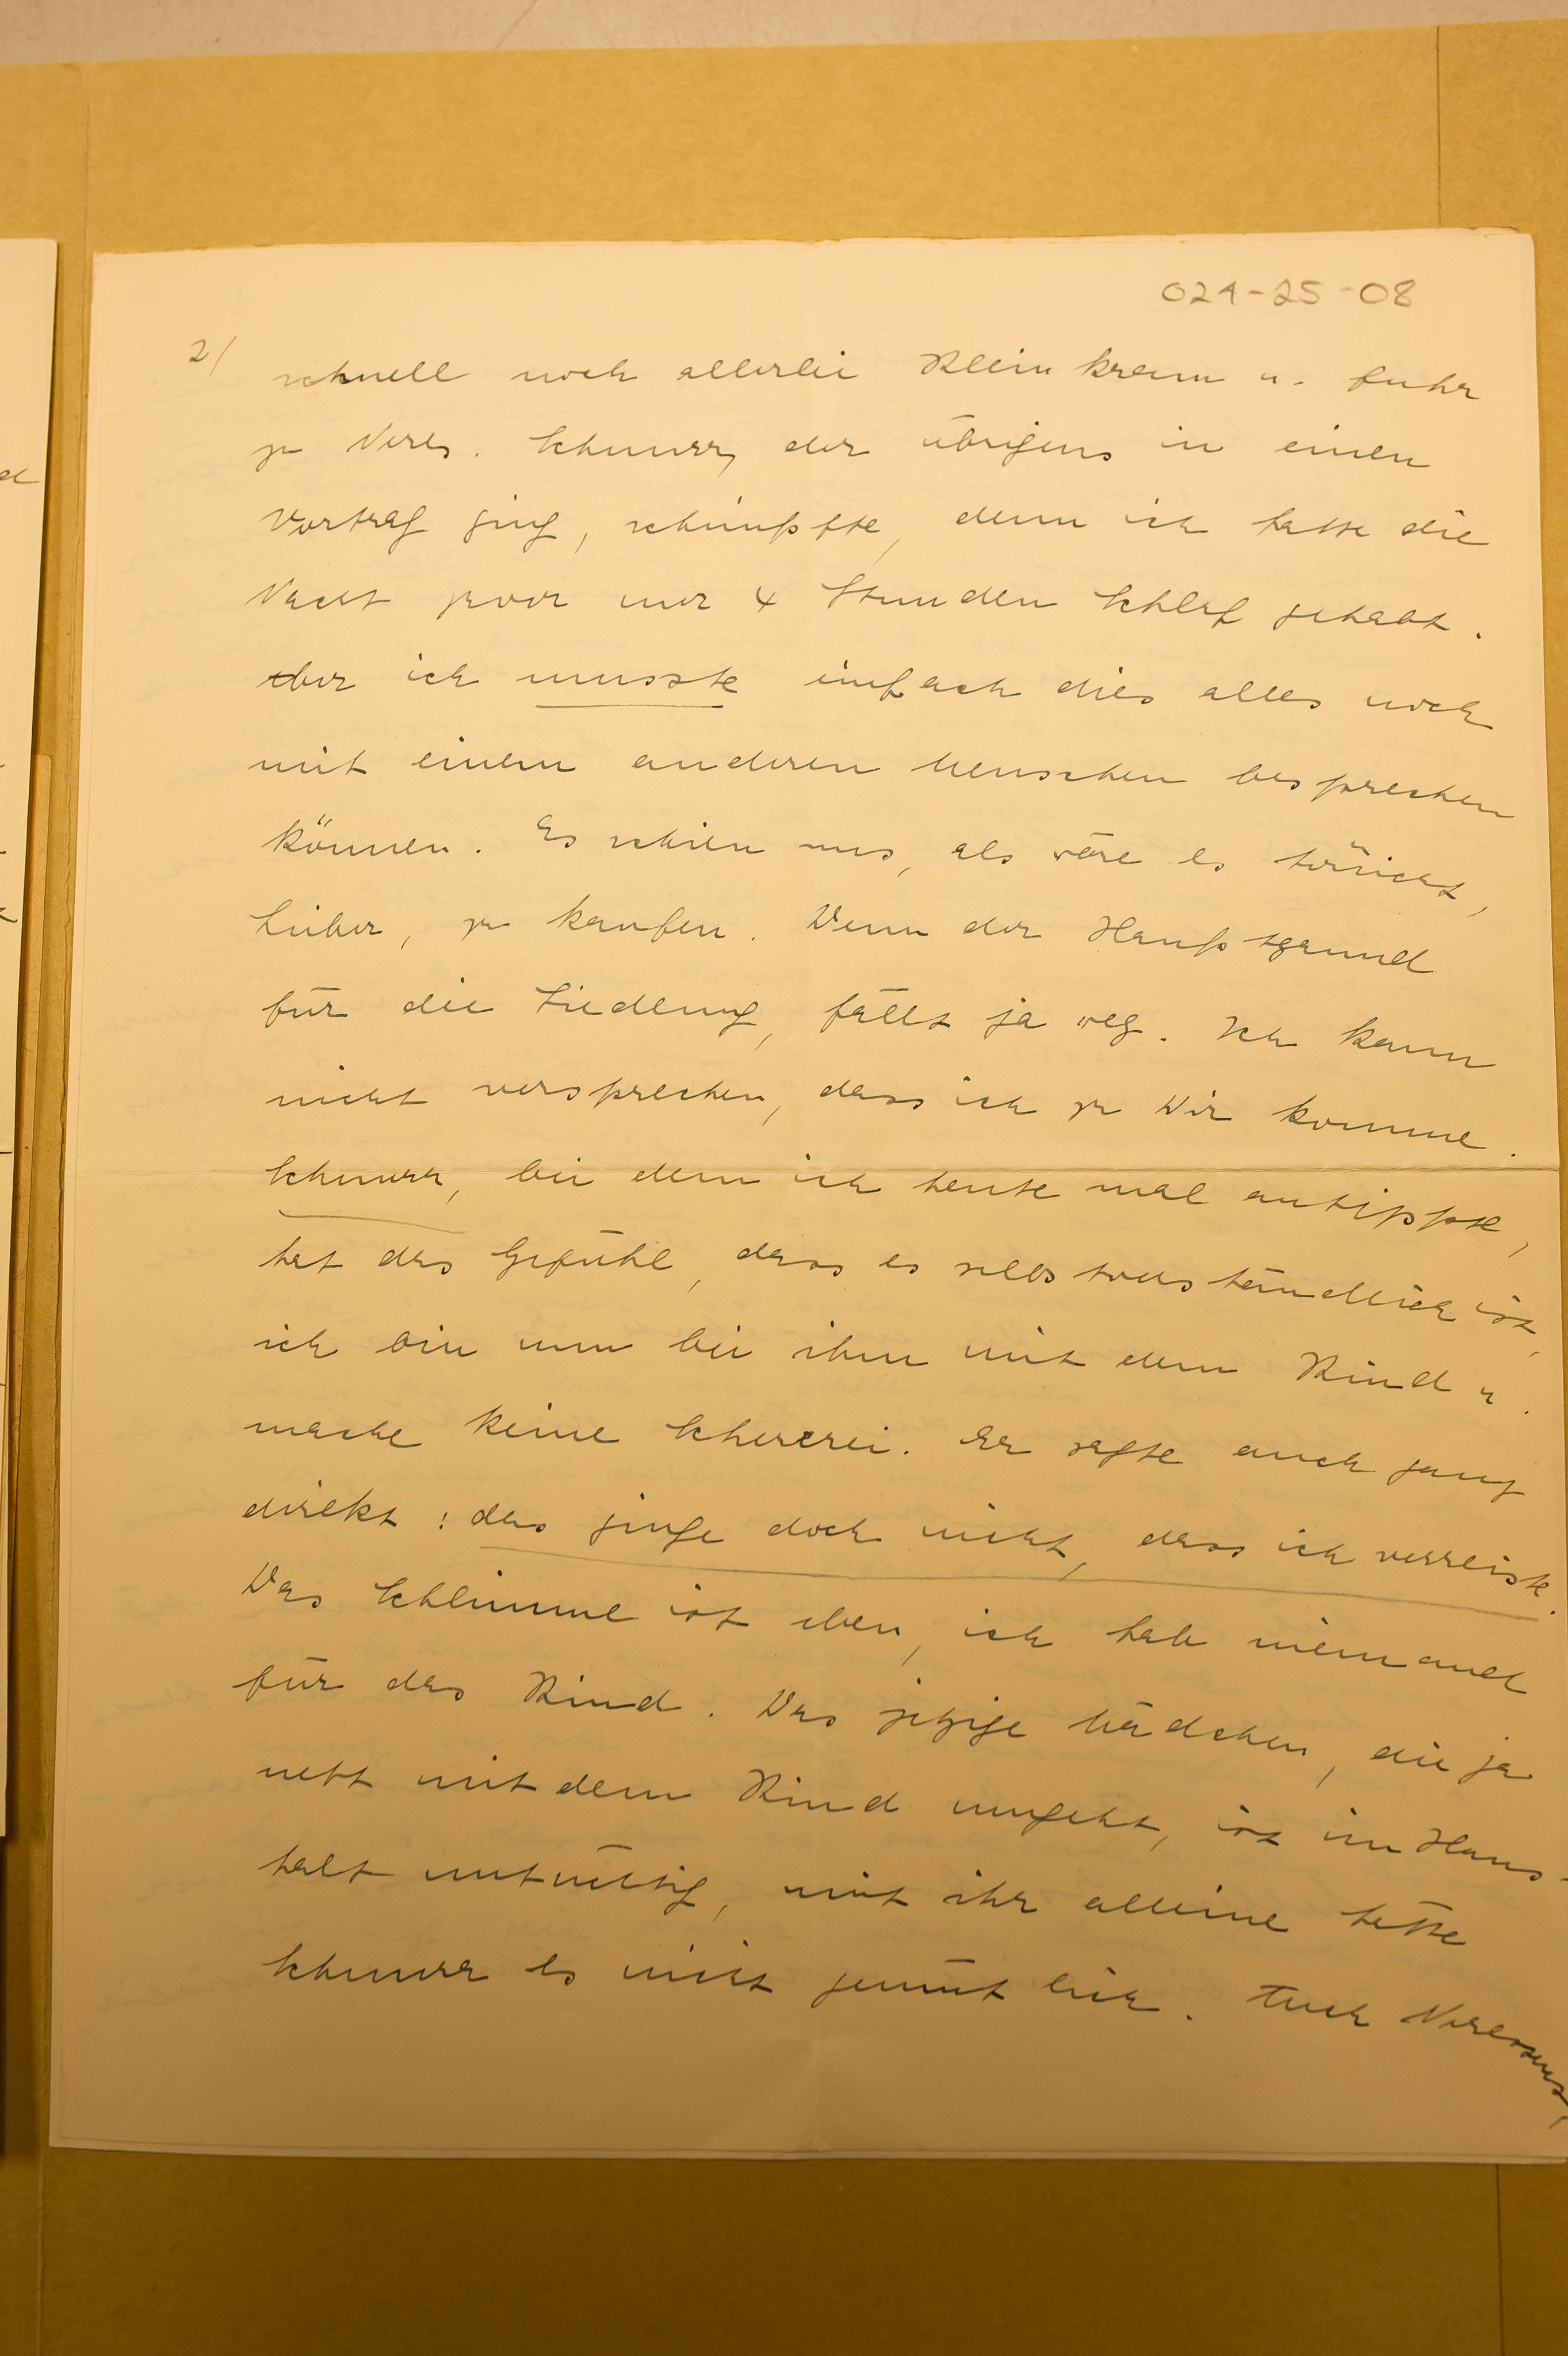 024-25-08
2/ schnell noch allerlei Kleinkram u. fuhr
zu Verls. Schnurz, der übrigens in einen
Vortrag ging, schimpfte, denn ich hatte die
Nacht zuvor nur 4 Stunden Schlaf gehabt.
Aber ich musste einfach dies alles noch
mit einem anderen Menschen besprechen
können. Es schien uns, als wäre es töricht,
Lieber, zu kaufen. Denn der Hauptgrund
für die Siedlung, fällt ja weg. Ich kann
nicht versprechen, dass ich zu Dir komme.
Schnurr, bei dem ich heute mal antippte,
hat das Gefühl, dass es selbstverständlich ist,
ich bin nun bei ihm mit dem Kind u.
mache keine Schererei. Er sagte auch ganz
direkt: das ginge doch nicht, dass ich verreiste.
Das Schlimme ist eben, ich hab niemand
für das Kind. Das jetzige Mädchen, die ja
nett mit dem Kind umgeht, ist im Haus-
halt untüchtig, mit ihr alleine hätte
Schnurr es nicht gemütlich. Auch